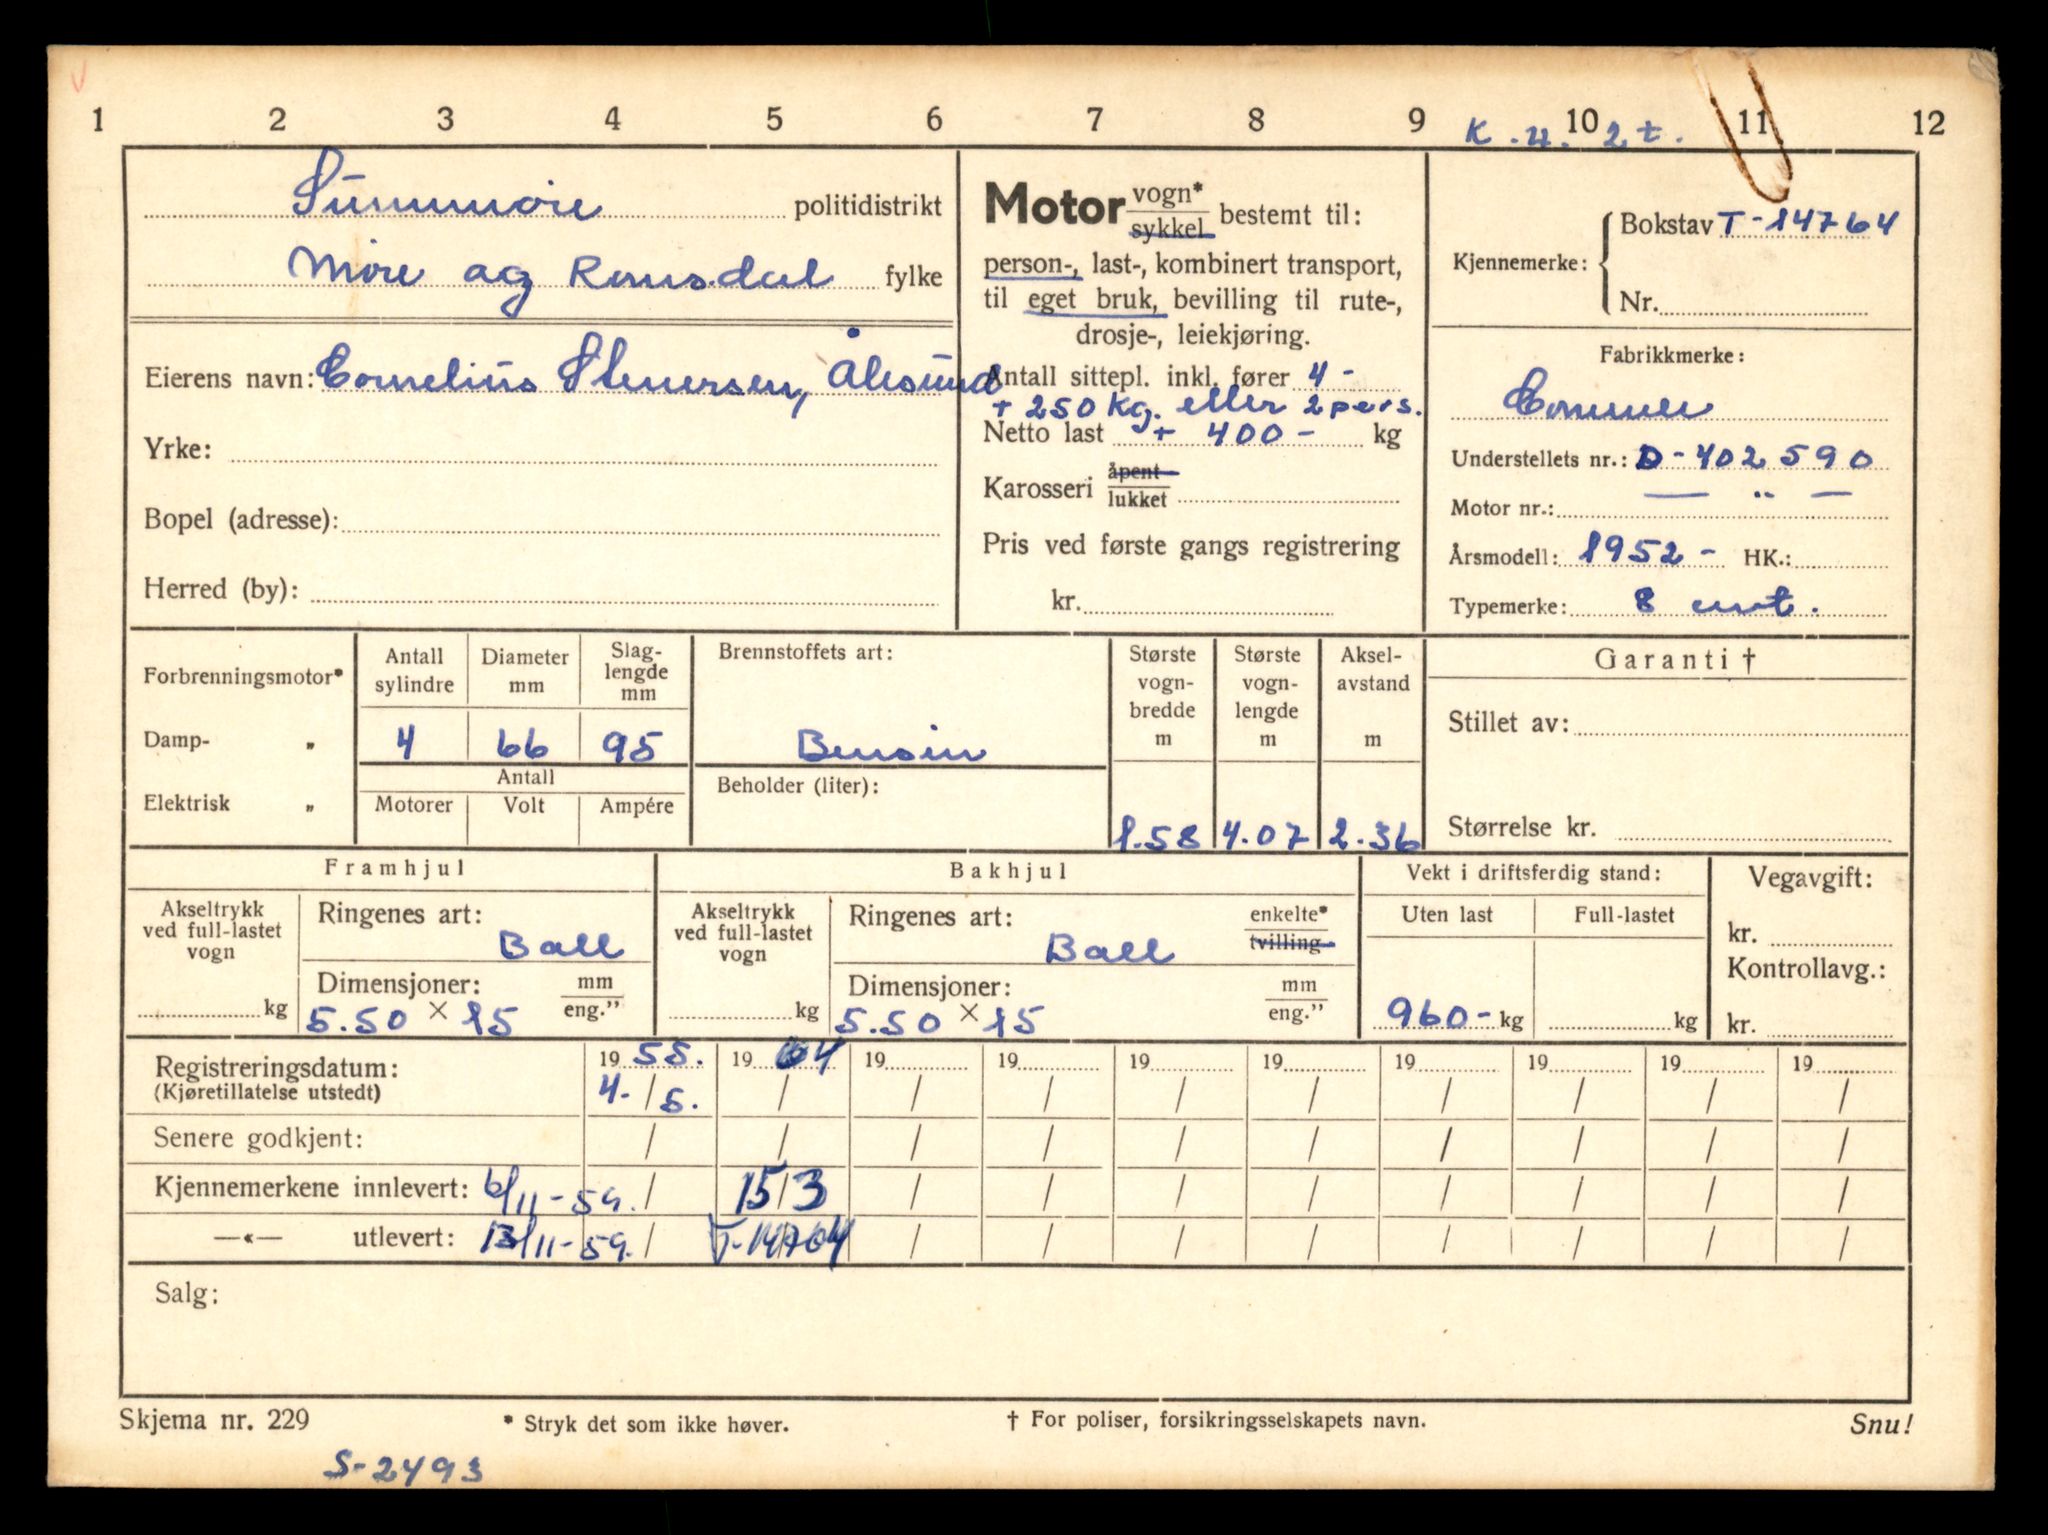 1 2 3 4 5 6 7 8 9 10 11 12
K.H. 2 t.
Sunnmøre politidistrikt
Møre og Romsdal fylke
Eierens navn: Cornelius Stenersen, Ålesund
Yrke:
Bopel (adresse):
Herred (by):
Motor vogn* sykkel bestemt til:
person-, last-, kombinert transport,
til eget bruk, bevilling til rute-,
drosje-, leiekjøring.
Antall sittepl. inkl. fører 4 -
+ 250 kg. eller 2 pers.
Netto last + 400 - kg
Karosseri åpent lukket
Pris ved første gangs registrering
kr.
Kjennemerke: Bokstav T-14764
Nr.
Fabrikkmerke:
Commer
Understellets nr.: D-402590
Motor nr.: — " —
Årsmodell: 1952 - HK.:
Typemerke: 8 cwt.
Forbrenningsmotor*
Damp- „
Elektrisk „
Antall sylindre
Diameter mm
Slag-lengde mm
4 66 95
Antall
Motorer Volt Ampére
Brennstoffets art:
Bensin
Beholder (liter):
Største vogn-bredde m
Største vogn-lengde m
Aksel-avstand m
1.58 4.07 2.36
Garanti †
Stillet av:
Størrelse kr.
Framhjul
Akseltrykk ved full-lastet vogn
kg
Ringenes art:
Ball
Dimensjoner: mm eng.”
5.50 × 15
Bakhjul
Akseltrykk ved full-lastet vogn
kg
Ringenes art: enkelte* tvilling
Ball
Dimensjoner: mm eng.”
5.50 × 15
Vekt i driftsferdig stand:
Uten last Full-lastet
960 - kg kg
Vegavgift:
kr.
Kontrollavg.:
kr.
Registreringsdatum: 19 55. 19 64 19 19 19 19 19 19 19 19
(Kjøretillatelse utstedt) 4. / 5. / / / / / / / / /
Senere godkjent: / / / / / / / / / /
Kjennemerkene innlevert: 6/11-59. / 15/3 / / / / / / / /
—«— utlevert: 13/11-59. / T-14764 / / / / / / / /
Salg:
Skjema nr. 229
* Stryk det som ikke høver.
† For poliser, forsikringsselskapets navn.
Snu!
S-2493